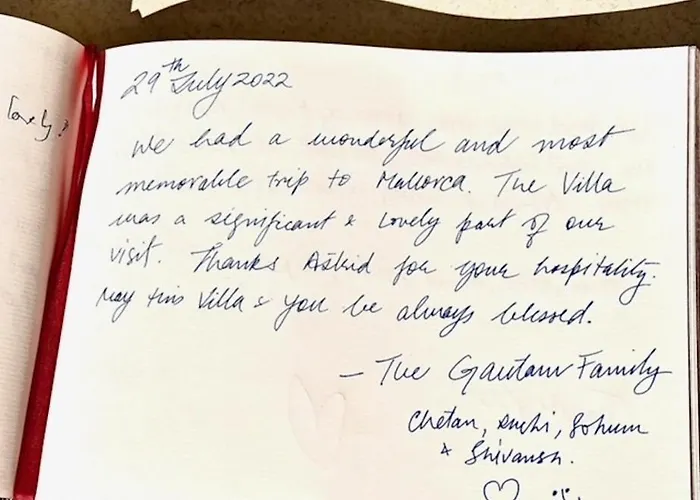 29th July 2022
We had a wonderful and most
memorable trip to Mallorca. The Villa
was a significant & lovely part of our
visit. Thanks Astrid for your hospitality.
May this Villa & you be always blessed.
– The Gautam Family
Chetan, Suchi, Sohum
& Shivansh.
lovely!